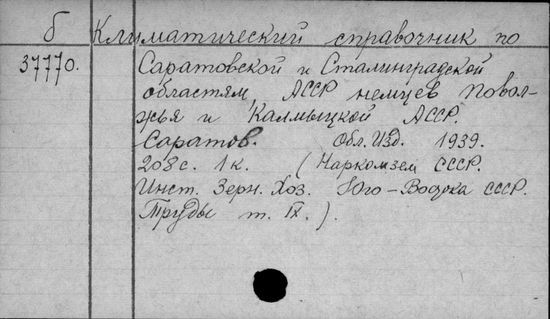 б Климатический справочник по
37770. Саратовской и Сталинградской
областям, АССР немцев Повол-
жья и Калмыцкой АССР.
Саратов. Обл. Изд. 1939.
208 с. 1 к. (Наркомзем СССР.
Инст. Зерн. Хоз. Юго-Востока СССР.
Труды т. IX.).